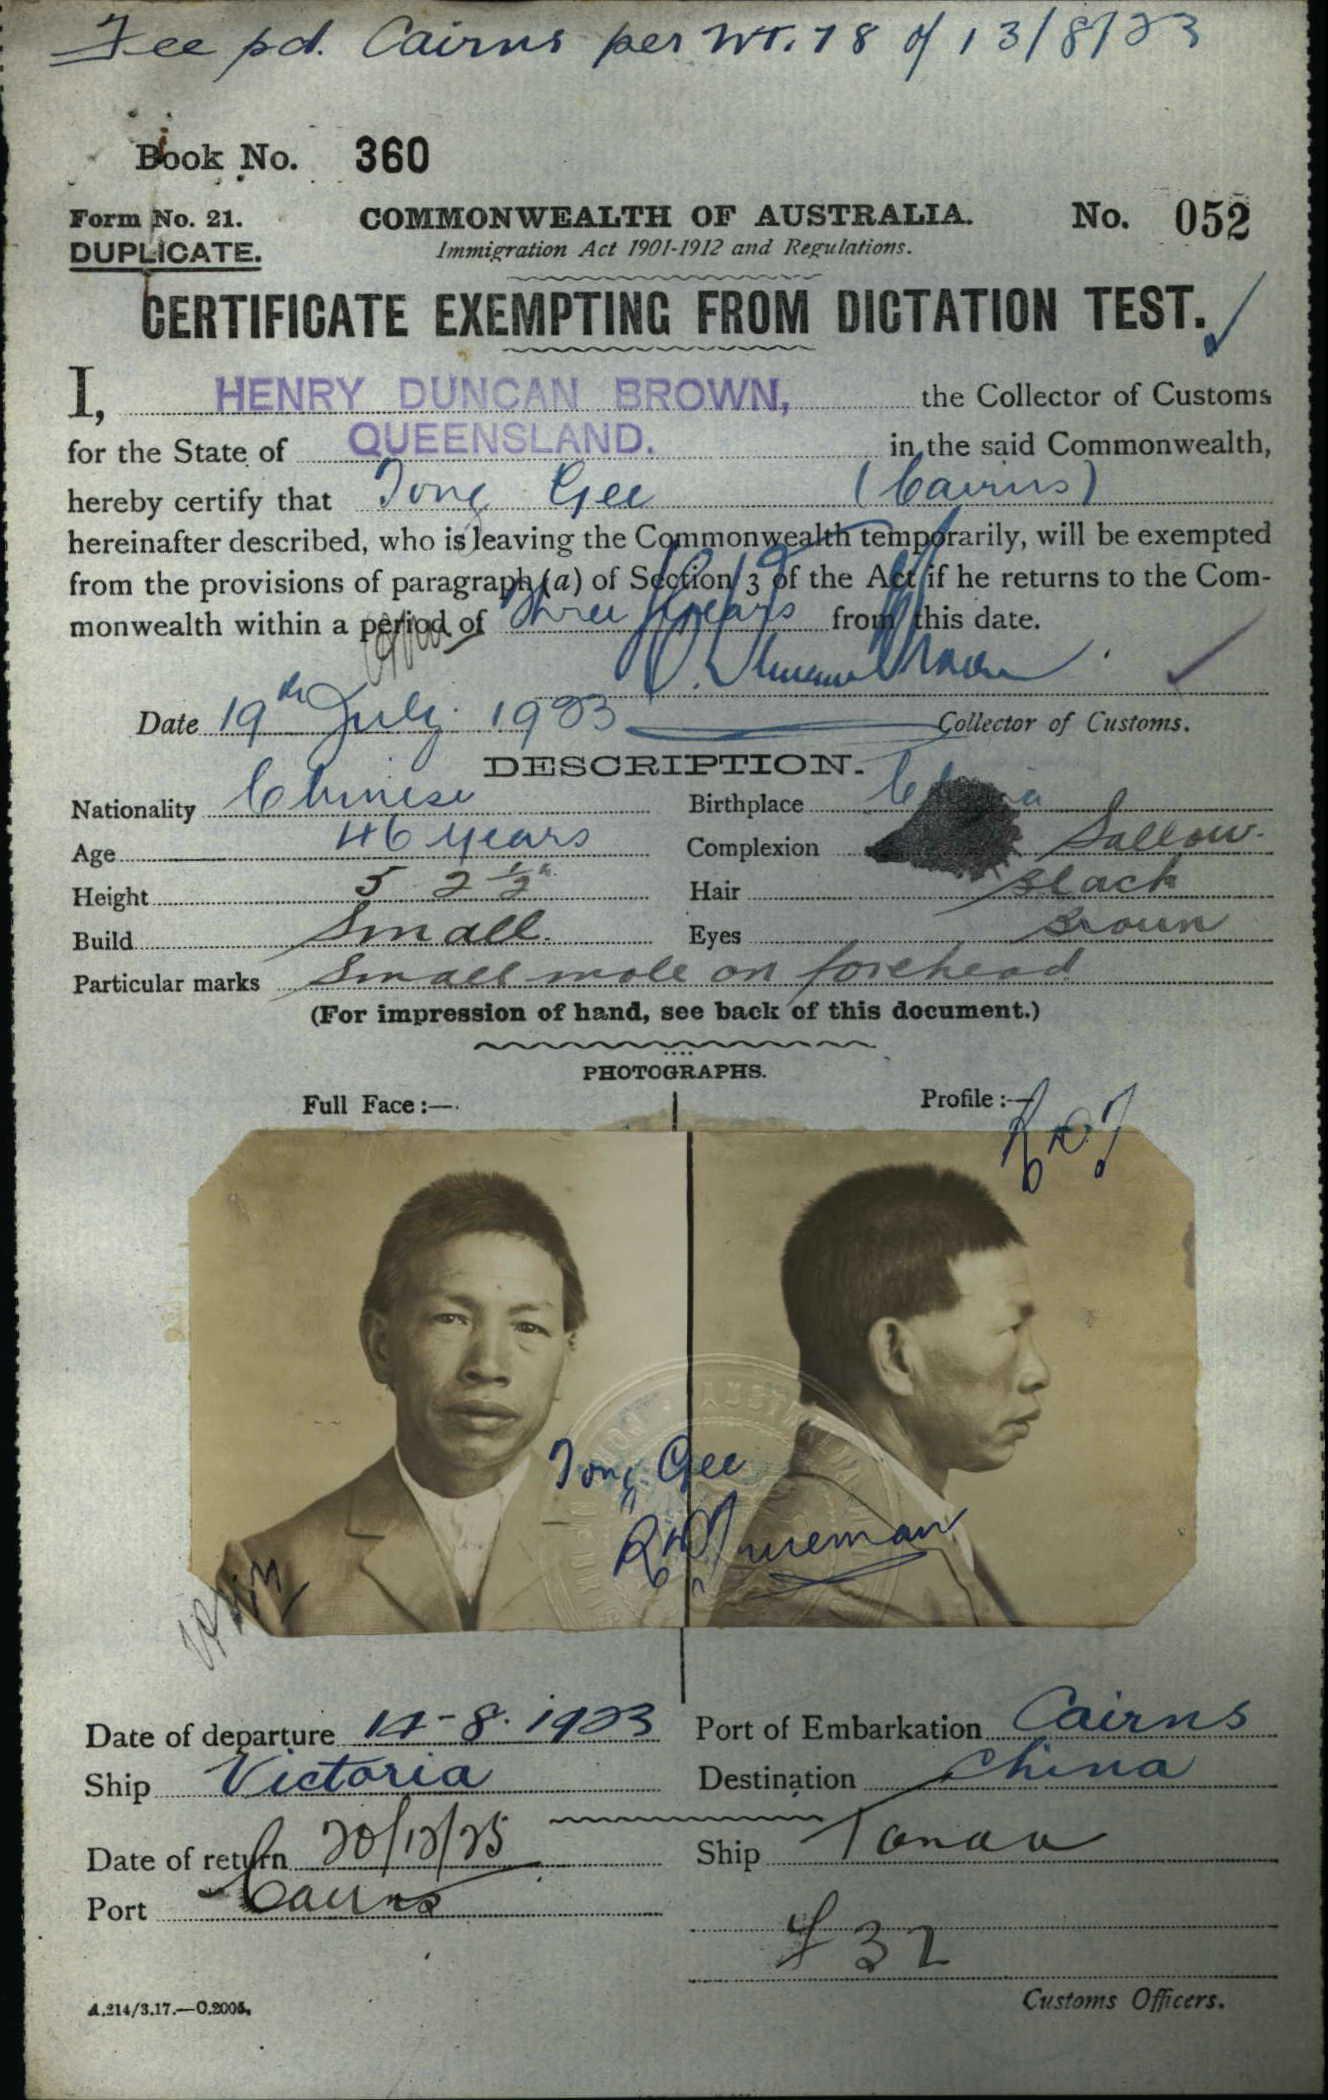 Fee pd. Cairns per Wt. 78 of 13/8/23
Book No. 360
Form No. 21. COMMONWEALTH OF AUSTRALIA. No. 052
DUPLICATE. Immigration Act 1901-1912 and Regulations.
CERTIFICATE EXEMPTING FROM DICTATION TEST.
I, HENRY DUNCAN BROWN, the Collector of Customs
for the State of QUEENSLAND. in the said Commonwealth,
hereby certify that Tong Gee (Cairns)
hereinafter described, who is leaving the Commonwealth temporarily, will be exempted
from the provisions of paragraph (a) of Section 3 of the Act if he returns to the Com-
monwealth within a period of three years from this date.
Date 19th July 1923 Collector of Customs.
DESCRIPTION.
Nationality Chinese Birthplace China
Age 46 years Complexion Sallow
Height 5 2 ½" Hair Black
Build Small. Eyes Brown
Particular marks Small mole on forehead
(For impression of hand, see back of this document.)
PHOTOGRAPHS.
Full Face :— Profile :—
Tong Gee
Date of departure 14-8-1923 Port of Embarkation Cairns
Ship Victoria Destination China
Date of return 20/12/25 Ship
Port Cairns
32
Customs Officers.
A.214/3.17.—O.2005.